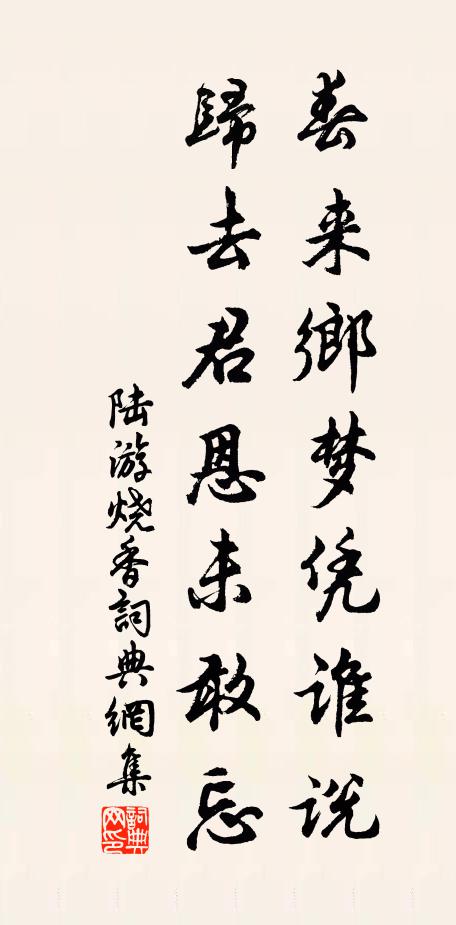 春来鄉梦凭谁说
歸去君恩未敢忘
陆游烧香詞典網集
詞典網印